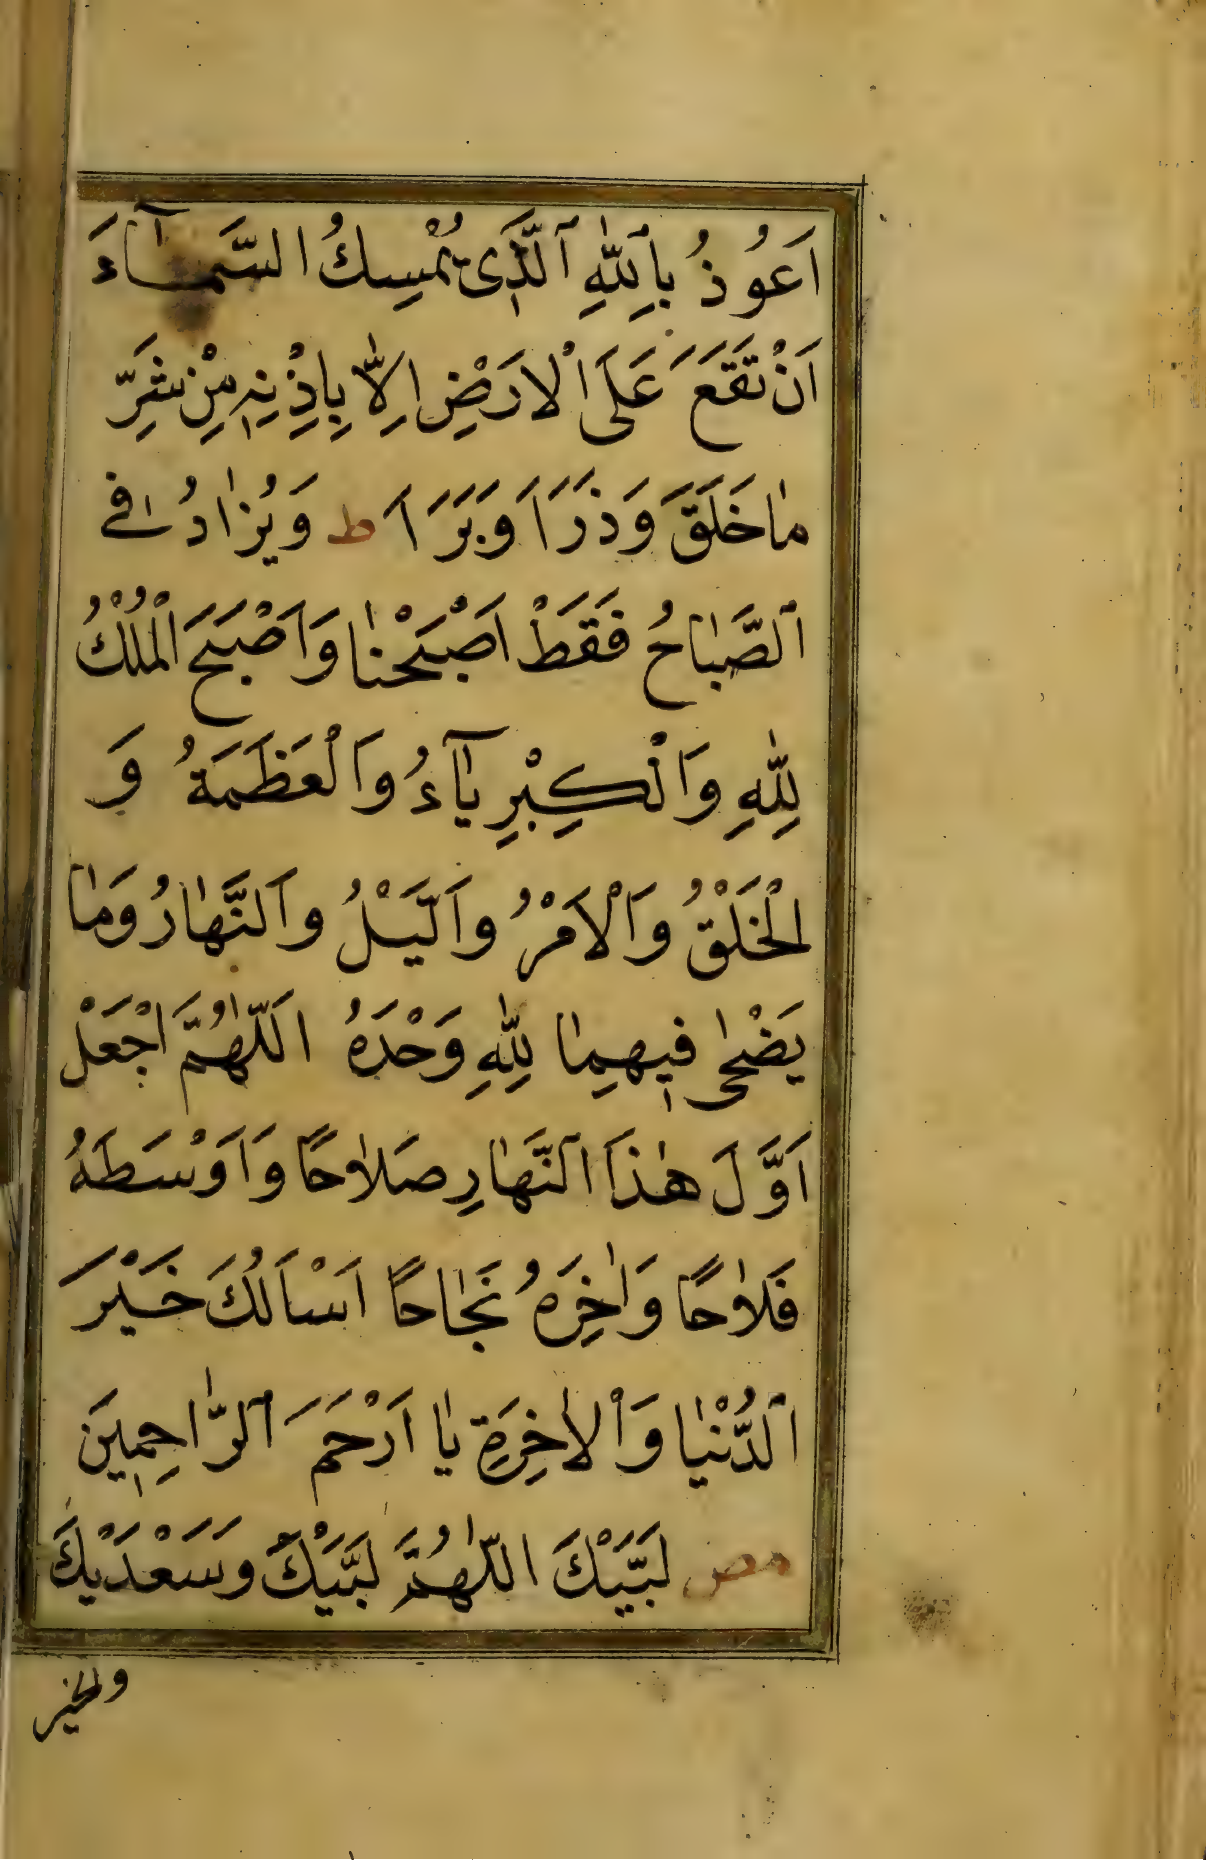 اَعُوذُ بِاللّٰهِ الَّذِى يُمْسِكُ السَّمَآءَ
اَنْ تَقَعَ عَلَى الْاَرْضِ اِلَّا بِاِذْنِهِ مِنْ شَرِّ
مٰا خَلَقَ وَذَرَاَ وَبَرَاَ ط وَيُزٰادُ فِى
الصَّبٰاحُ فَقَطْ اَصْبَحْنٰا وَاَصْبَحَ الْمُلْكُ
لِلّٰهِ وَالْكِبْرِيٰآءُ وَالْعَظَمَةُ وَ
الْخَلْقُ وَالْاَمْرُ وَالَّيْلُ وَالنَّهٰارُ وَمٰا
يَضْحٰى فِيهِمٰا لِلّٰهِ وَحْدَهُ اَللّٰهُمَّ اجْعَلْ
اَوَّلَ هٰذَا النَّهٰارِ صَلٰاحًا وَاَوْسَطَهُ
فَلٰاحًا وَاٰخِرَهُ نَجٰاحًا اَسْاَلُكَ خَيْرَ
الدُّنْيٰا وَالْاٰخِرَةِ يٰا اَرْحَمَ الرّٰاحِمِينَ
مص لَبَّيْكَ اللّٰهُمَّ لَبَّيْكَ وَسَعْدَيْكَ
والخير